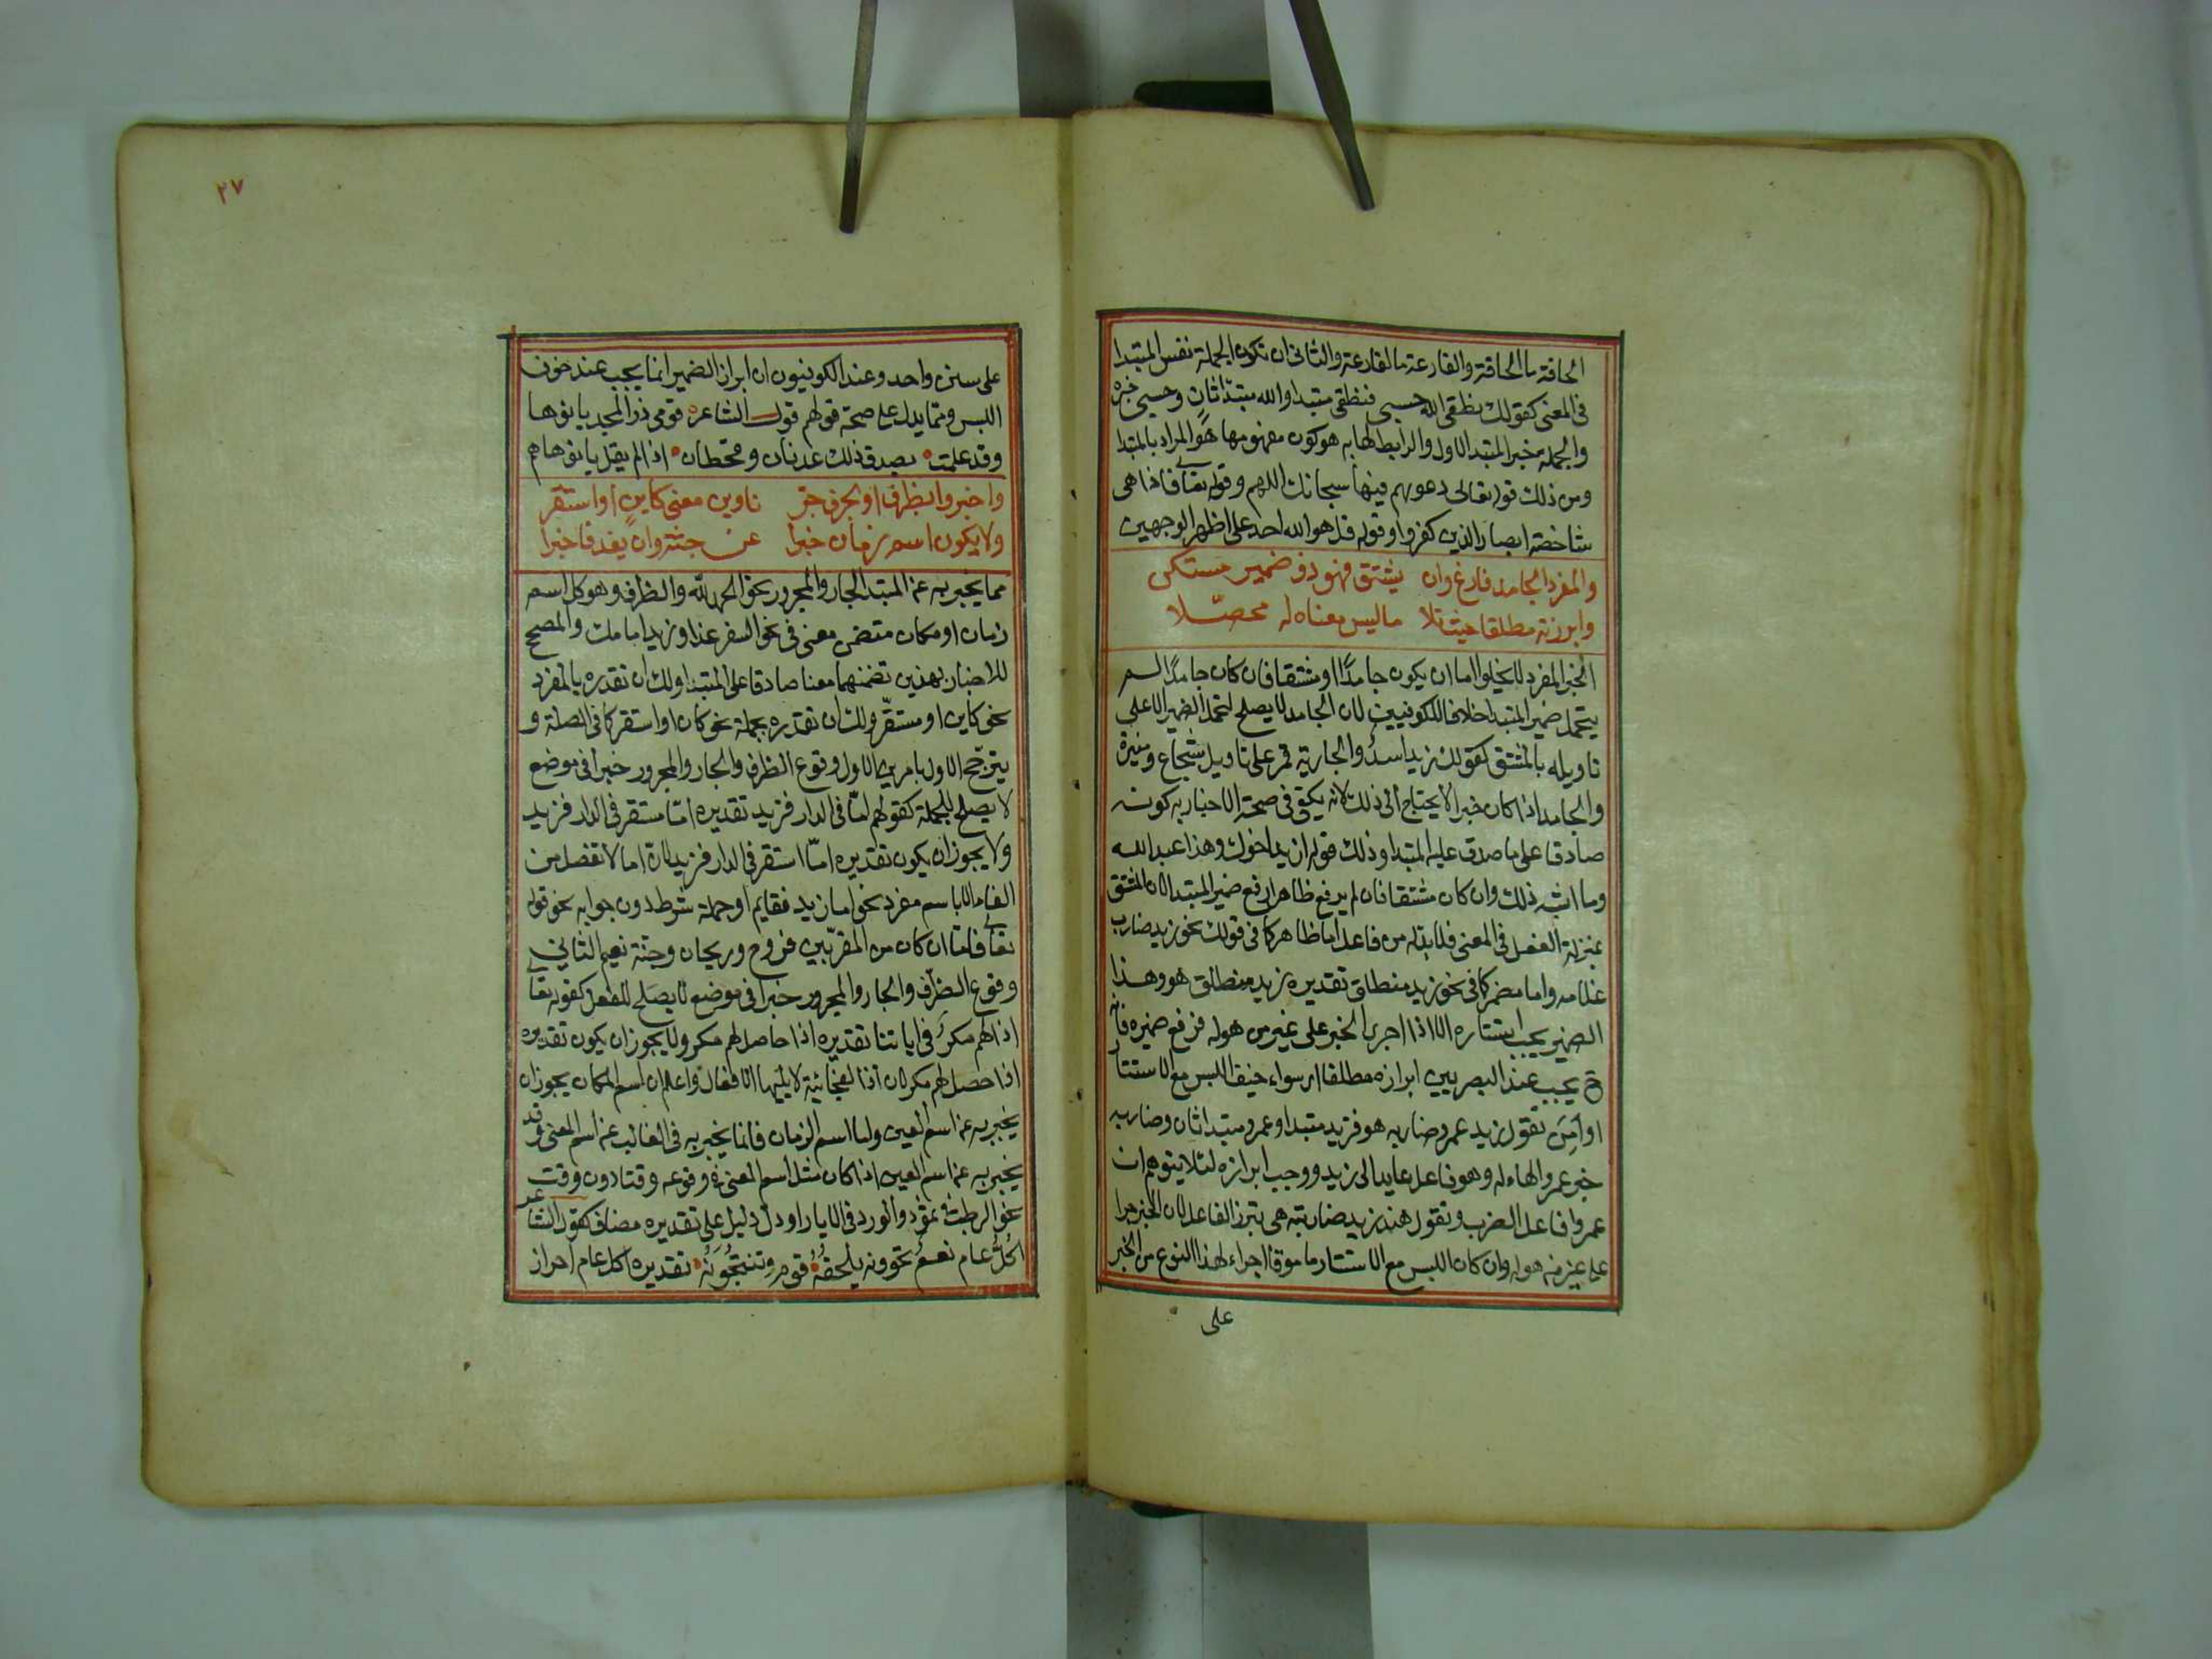 الحاقة ما الحاقة والقارعة ما القارعة والثاني ان تكون الجملة نفس المبتدا
في المعنى كقولك نطقي الله حسبي فنطقي مبتدا والله مبتدأ ثانٍ وحسبي خبره
والجملة خبر المبتدا الاول والرابط لها به هو كون مفهومها هو المراد بالمبتدا
ومن ذلك قوله تعالى دعويهم فيها سبحانك اللهم وقوله تعالى فاذا هي
شاخصة ابصار الذين كفروا وقوله قل هو الله احد على اظهر الوجهين
والمفرد الجامد فارغ وان يشتق فهو ذو ضمير مستكن
وابرزنه مطلقا حيث تلا ما ليس معناه له محصّلا
الخبر المفرد لا يخلوا اما ان يكون جامدًا او مشتقا فان كان جامدًا لم
يتحمل ضمير المبتدا خلافا للكوفيين لان الجامد لا يصلح لتحمل الضمير الا على
تاويله بالمشتق كقولك زيد اسدٌ والجارية قمر على تاويل شجاع ومنيرة
والجامد اذا كان خبرا لا يحتاج الى ذلك لانه يكفي في صحة الاخبار به كونه
صادقا على ما صدق عليه المبتدا وذلك قوله ازيد اخوك وهذا عبد الله
وما اشبه ذلك وان كان مشتقا فان لم يرفع ظاهرا رفع ضمير المبتدا لان المشتق
بمنزلة الفعل في المعنى فلا بد له من فاعل اما ظاهر كما في قولك نحو زيد ضارب
غلامه واما مضمر كما في نحو زيد منطلق تقديره زيد منطلق هو وهذا
الضمير يجب استتاره الا اذا اجرى الخبر على غير من هو له فرفع ضميره فانه
ح يجب عند البصريين ابرازه مطلقا اى سواء خيف اللبس مع الاستتار
او اُمِنَ تقول زيد عمرو ضاربه هو فزيد مبتدا وعمرو مبتدا ثان وضاربه
خبر عمرو والهاء له وهو فاعل عايد الى زيد ووجب ابرازه لئلا يتوهم ان
عمروا فاعل الضرب وتقول هند زيد ضاربته هي تبرز الفاعل لان الخبر جرا
على غير من هو له وان كان اللبس مع الاستتار مامونا اجراء لهذا النوع من الخبر
على
٢٧
على سنن واحد وعند الكوفيون ان ابراز الضمير انما يجب عند خوف
اللبس ومما يدل على صحة قولهم قول الشاعر قومي ذرا المجد بانوها
وقد علمت بصدق ذلك عدنان وقحطان اذا لم يقل بانوها هم
واخبروا بظرف او بحرف جر ناوين معنى كاين او استقر
ولا يكون اسم زمان خبرا عن جثة وان يفد فاخبرا
مما يخبر به عن المبتدا الجار والمجرور نحو الحمد لله والظرف وهو كل اسم
زمان او مكان متضمن معنى في نحو السفر غدا وزيد امامك والمصحح
للاخبار بهذين تضمنهما معنا صادقا على المبتدا ولك ان تقدره بالمفرد
نحو كاين او مستقرّ ولك ان تقدره بجملة نحو كان او استقر كما في الصلة و
يترجّح الاول بامرين الاول وقوع الظرف والجار والمجرور خبرا في موضع
لا يصلح للجملة كقولهم امّا في الدار فزيد تقديره امّا مستقر في الدار فزيد
ولا يجوز ان يكون تقديره امّا استقر في الدار فزيد لان اما لا تفصل من
الفاء الا باسم مفرد نحو اما زيد فقايم او جملة شرط دون جوابه نحو قوله
تعالى فامّا ان كان من المقربين فروح وريحان وجنة نعيم الثاني
وقوع الظرف والجار والمجرور خبرا في موضع لا يصلح للفعل كقوله تعالى
اذا لهم مكرٌ في اياتنا تقديره اذا حاصل لهم مكر ولا يجوز ان يكون تقديره
اذا حصل لهم مكر لان اذا الفجائية لا يليها الافعال واعلم ان اسم المكان يجوز ان
يخبر به عن اسم العين واما اسم الزمان فانما يخبر به في الغالب عن اسم المعنى وقد
يخبر به عن اسم العين اذا كان مثل اسم المعنى في وقوعه وقتا دون وقت
نحو الرطب في تموز والورد في الايار او دل دليل على تقديره مضاف كقول الشاعر
اكُلُّ عام نعمٌ تحوونه يلحقُهُ قوم وتنتجُونَهُ تقديره اكل عام احراز